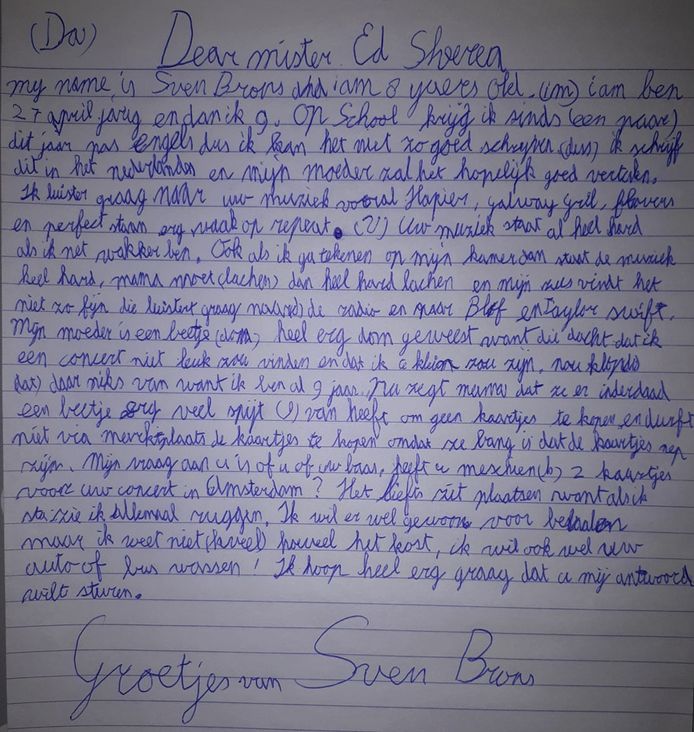 (Da) Dear mister Ed Sheeren
my name is Sven Brons and i am 8 yeers old. (im) i am ben
27 april jarig en dan ik 9. Op School krijg ik sinds (een paar)
dit jaar pas engels dus ik kan het niet zo goed schrijven (dus) ik schrijf
dit in het nederlands en mijn moeder zal het hopelijk goed vertalen.
Ik luister graag naar uw muziek vooral Hapier, galway gril, flovers
en perfect staan erg vaak op repeat. (U) Uw muziek staat al heel hard
als ik net wakker ben. Ook als ik ga tekenen op mijn kamer dan staat de muziek
heel hard, mama moet (lachen) dan heel hard lachen en mijn zus vindt het
niet zo fijn die luistert graag naar de radio en naar Bløf en Taylor swift.
Mijn moeder is een beetje (dom) heel erg dom geweest want die dacht dat ik
een concert niet leuk zou vinden en dat ik te klein zou zijn, nou klopt
dat) daar niks van want ik ben al 9 jaar. Nu zegt mama dat ze er inderdaad
een beetje erg veel spijt (v) van heeft om geen kaartjes te kopen, en durft
niet via merktplaats de kaartjes te kopen omdat ze bang is dat de kaartjes nep
zijn. Mijn vraag aan u is of u of uw baas, heeft u meschien (k) 2 kaartjes
voor uw concert in Amsterdam? Het liefts zit plaatsen want als ik
sta zie ik allemaal ruggen. Ik wil er wel gewoon voor betalen
maar ik weet niet (hveel) hoeveel het kost, ik wil ook wel uw
auto of bus wassen! Ik hoop heel erg graag dat u mij antwoord
wilt sturen.
Groetjes van Sven Brons